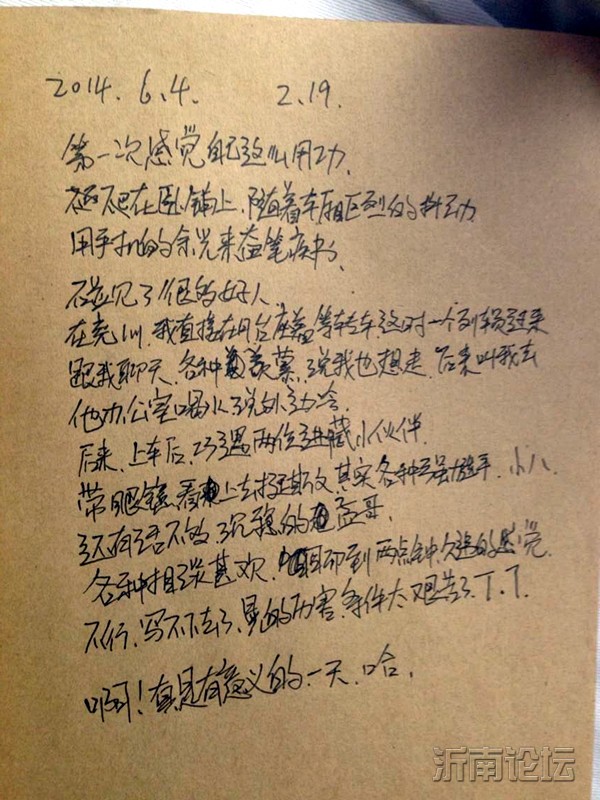 2014. 6.4. 2.19.
第一次感觉自己这么用功.
在卧铺上,随着车厢区列的抖动
用手机的余光来奋笔疾书.
碰见了很多好人.
在兖州,我直接在月台座着等转车,这时一个列车员过来
跟我聊天,各种羡慕,说我也想走.后来叫我去
他办公室喝水了说外边冷.
后来,上车后,巧遇两位进藏小伙伴.
带眼镜看上去挺斯文,其实各种选手.小八.
还有话不多沉稳的孟哥.
各种相谈甚欢.聊到两点钟,久违的感觉.
不行,写不下去了,晃的厉害,条件太艰苦了.T.T.
啊!真是有意义的一天.哈.
沂南论坛